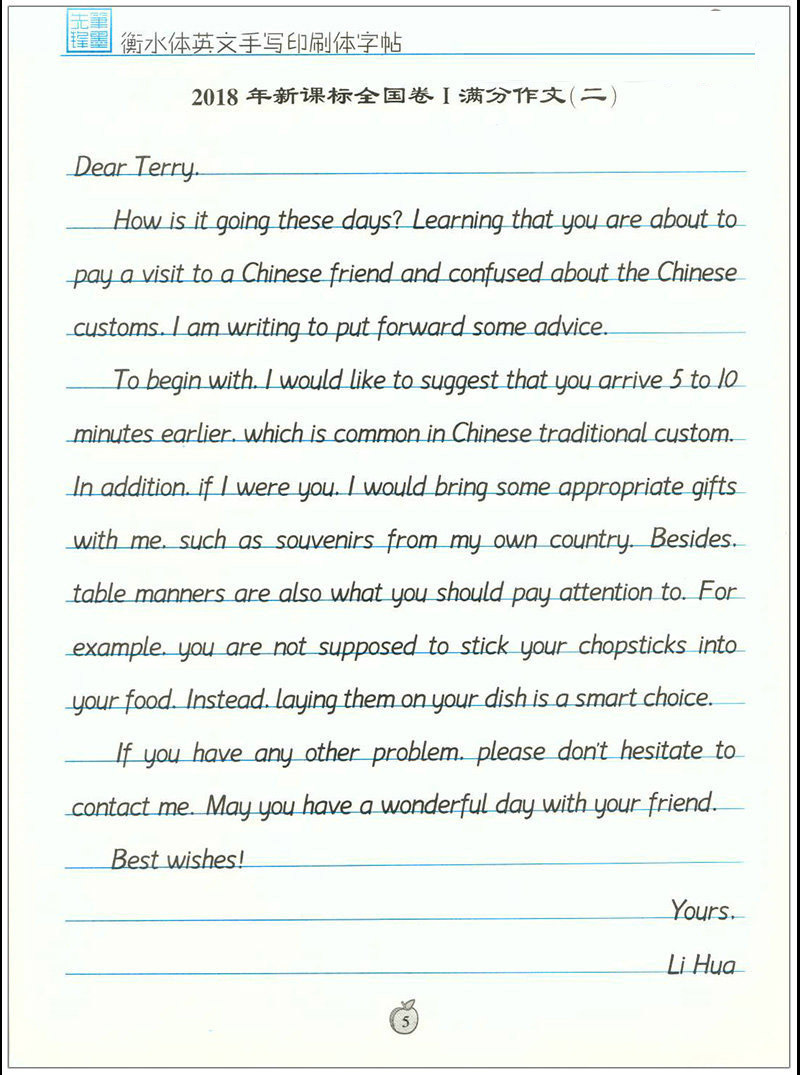 先筆
鋒墨
衡水体英文手写印刷体字帖
2018 年新课标全国卷 I 满分作文(二)
Dear Terry,
How is it going these days? Learning that you are about to
pay a visit to a Chinese friend and confused about the Chinese
customs, I am writing to put forward some advice.
To begin with, I would like to suggest that you arrive 5 to 10
minutes earlier, which is common in Chinese traditional custom.
In addition, if I were you, I would bring some appropriate gifts
with me, such as souvenirs from my own country. Besides,
table manners are also what you should pay attention to. For
example, you are not supposed to stick your chopsticks into
your food. Instead, laying them on your dish is a smart choice.
If you have any other problem, please don't hesitate to
contact me. May you have a wonderful day with your friend.
Best wishes!
Yours,
Li Hua
5